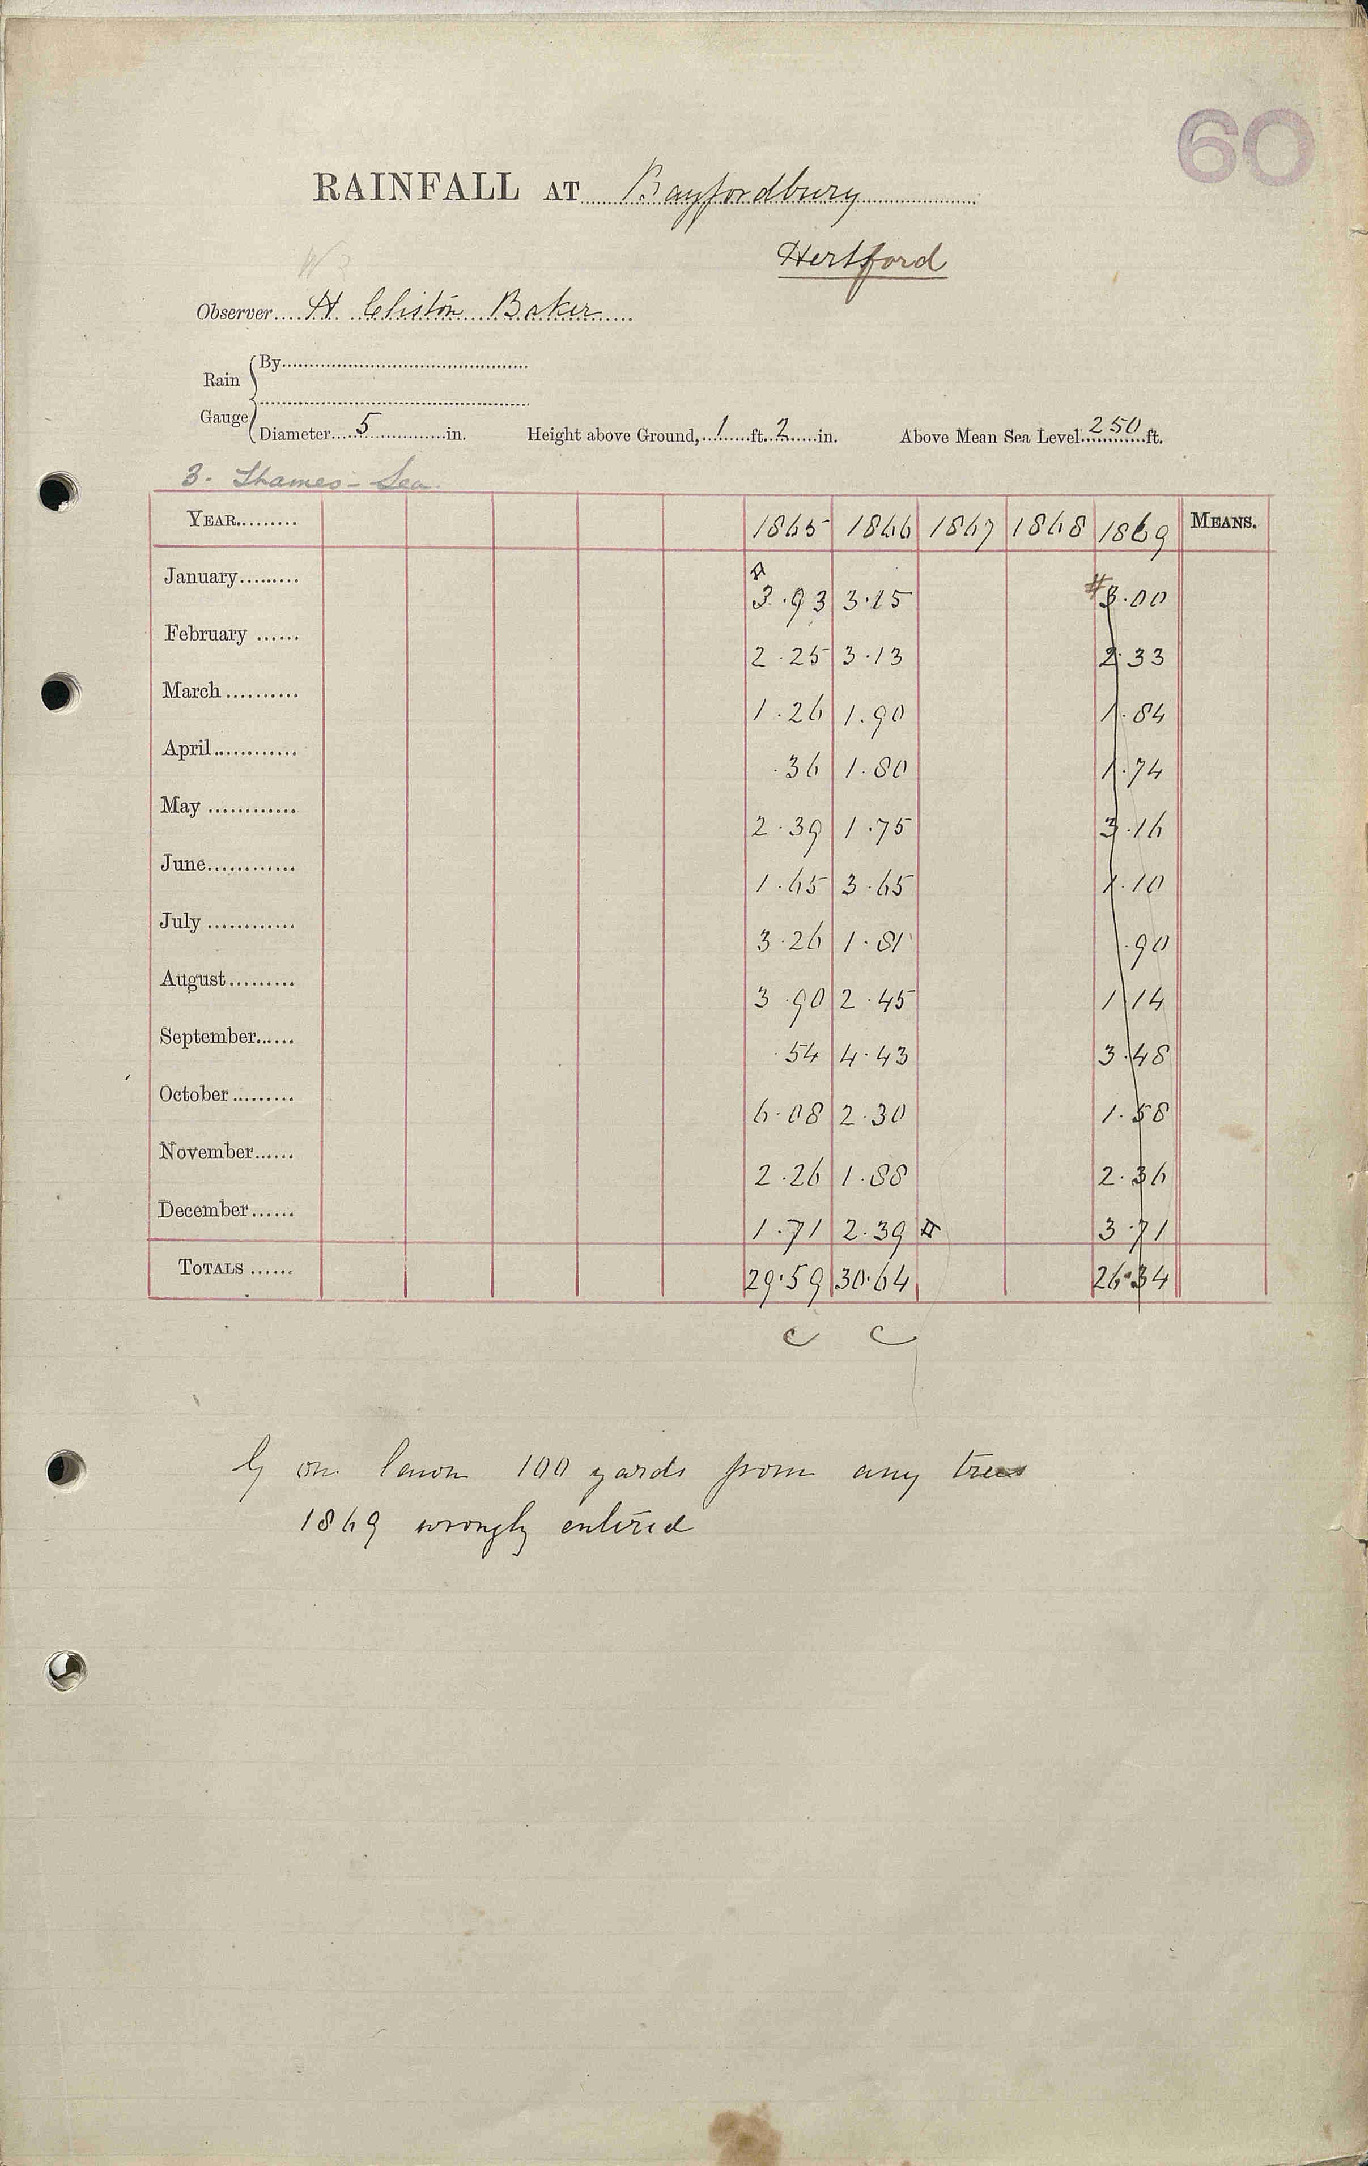 60
RAINFALL AT Bayfordbury
Hertford
W 3
Observer H Clinton Baker
Rain Gauge
By
Diameter 5 in. Height above Ground, 1 ft. 2 in. Above Mean Sea Level 250 ft.
3. Thames - Sea.
YEAR 1865 1866 1867 1868 1869 MEANS.
January 3.93 3.15 3.00
February 2.25 3.13 2.33
March 1.26 1.90 1.84
April .36 1.80 1.74
May 2.39 1.75 3.16
June 1.65 3.65 1.10
July 3.26 1.81 .90
August 3.90 2.45 1.14
September .54 4.43 3.48
October 6.08 2.30 1.58
November 2.26 1.88 2.36
December 1.71 2.39 3.71
TOTALS 29.59 30.64 26.34
c c
G on lawn 100 yards from any trees
1869 wrongly entered